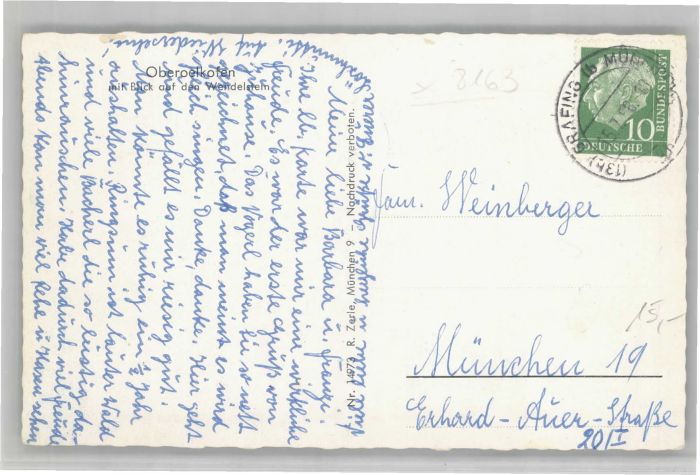 Oberpelkofen
mit Blick auf den Wendelstein
Meine liebe Barbara u. Franzi.
Ihre lb. Karte war mir eine wirkliche
Freude. Es war der erste Gruß von
zuhause. Das Vogerl haben Sie so nett
gezeichnet, daß man meint es wird
gleich singen. Danke, danke. Hier geht
und gefällt es mir riesig gut.
Man könnte es ruhig ein ½ Jahr
aushalten. Ringsum ist lauter Wald
und viele Bacherl die so lustig da-
hinrauschen. Habe dadurch viel Freude
abends kan man viel Rehe u. Hasen sehen
Auf Wiedersehn!
Nr. 14973 R. Zerle, München 9 — Nachdruck verboten.
x 8163
(13b) GRAFING (b MÜNCHEN)
10
DEUTSCHE
BUNDESPOST
Fam. Weinberger
15,-
München 19
Erhard-Auer-Straße
20/I